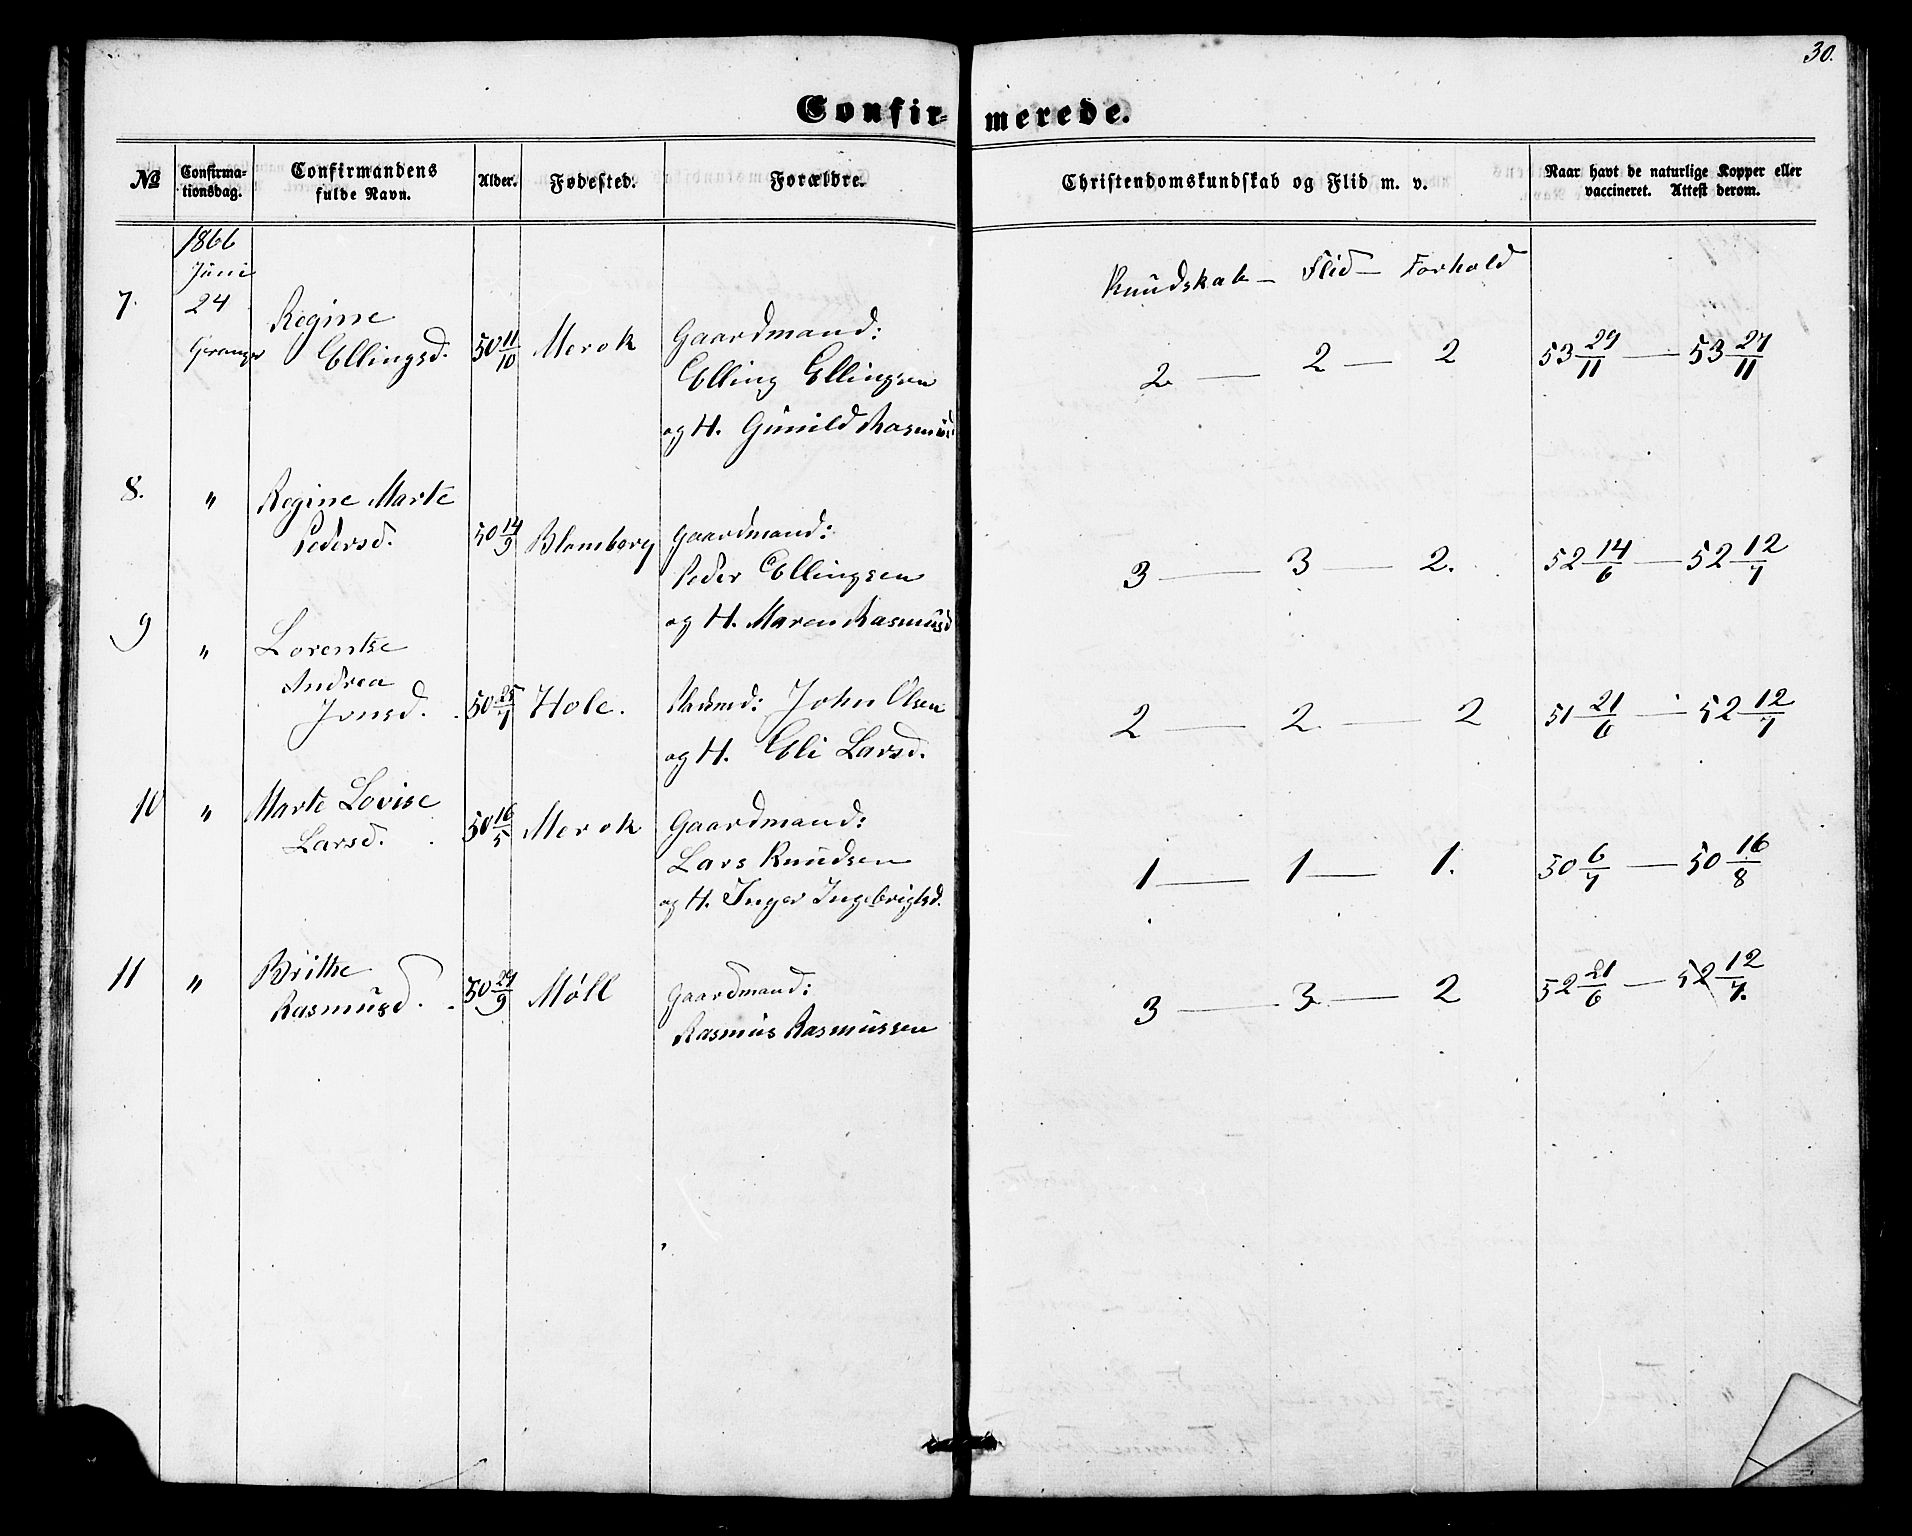 30.
Confir-merede.
No
Confirma-tionsdag.
Confirmandens fulde Navn.
Alder.
Fødested.
Forældre.
Christendomskundskab og Flid m. v.
Naar havt de naturlige Kopper eller vaccineret. Attest derom.
1866
Juni
24
Geranger
Kundskab — Flid — Forhold
7. Regine Ellingsd. 50 11/10 Merok Gaardmand:
Elling Ellingsen
og H. Gunild Rasmusd
2 — 2 — 2 53 27/11 — 53 27/11
8. " Regine Marte
Pedersd. 50 14/9 Blomberg Gaardmand:
Peder Ellingsen
og H. Maren Rasmusd
3 — 3 — 2. 52 14/6 — 52 12/7
9 " Lorentse
Andrea
Jonsd. 50 25/7 Hole. John Olsen
og H. Eli Larsd.
2 — 2 — 2 51 21/6 — 52 12/7
10 " Marte Lovise
Larsd. 50 16/5 Merok Gaardmand:
Lars Knudsen
og H. Inger Ingebrigtsd.
1 — 1 — 1. 50 6/7 — 50 16/8
11 " Brithe
Rasmusd. 50 27/9 Møll Gaardmand:
Rasmus Rasmussen
3 — 3 — 2 52 21/6 — 52 12/7.